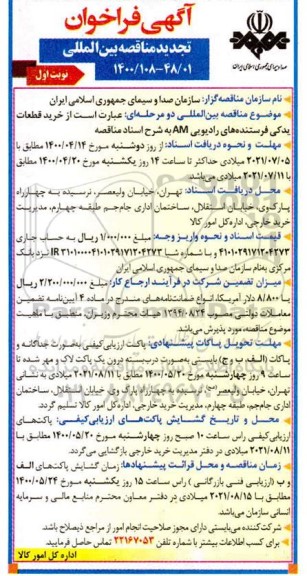 آگهی فراخوان
تجدید مناقصه بین المللی
۱۴۰۰/۱۰۸-۴۸/۰۱
نوبت اول
صدا و سیمای جمهوری اسلامی ایران
نام سازمان مناقصه‌گزار: سازمان صدا و سیمای جمهوری اسلامی ایران
موضوع مناقصه بین‌المللی دو مرحله‌ای: عبارت است از خرید قطعات
یدکی فرستنده‌های رادیویی AM به شرح اسناد مناقصه
مهلت و نحوه دریافت اسناد: از روز دوشنبه مورخ ۱۴۰۰/۰۴/۱۴ مطابق با
۲۰۲۱/۰۷/۰۵ میلادی حداکثر تا ساعت ۱۴ روز یکشنبه مورخ ۱۴۰۰/۰۴/۲۰ مطابق
با ۲۰۲۱/۰۷/۱۱ میلادی می‌باشد.
محل دریافت اسناد: تهران، خیابان ولیعصر، نرسیده به چهارراه
پارک‌وی خیابان استقلال، ساختمان اداری جام‌جم طبقه چهارم، مدیریت
خرید خارجی، اداره‌کل امور کالا
قیمت اسناد و نحوه واریز وجه: مبلغ ۱/۰۰۰/۰۰۰ ریال به حساب جاری
مرکزی به‌نام سازمان صدا و سیمای جمهوری اسلامی ایران
میزان تضمین شرکت در فرآیند ارجاع کار: مبلغ ۲/۲۰۰/۰۰۰/۰۰۰ ریال
یا ۸/۸۰۰ دلار آمریکا، انواع ضمانت‌نامه‌های مندرج در ماده ۴ آیین‌نامه تضمین
معاملات دولتی مصوب ۱۳۹۴/۰۸/۲۴ هیات محترم وزیران، متضمن با ماهیت
موضوع مناقصه، مورد پذیرش می‌باشد.
مهلت تحویل پاکات پیشنهادی: پاکت ارزیابی‌کیفی به‌صورت جداگانه و
پاکات (الف، ب و ج) بایستی به‌صورت دربسته درون یک پاکت لاک و مهر شده تا
ساعت ۹ روز چهارشنبه مورخ ۱۴۰۰/۰۵/۲۰ مطابق با ۲۰۲۱/۰۸/۱۱ میلادی به نشانی
تهران، خیابان ولیعصر(عج)، نرسیده به چهارراه پارک‌وی خیابان استقلال، ساختمان
اداری جام‌جم، طبقه چهارم، مدیریت خرید خارجی، اداره کل امور کالا تسلیم گردد.
محل و تاریخ گشایش پاکت‌های ارزیابی‌کیفی: پاکت‌های
ارزیابی‌کیفی راس ساعت ۱۰ صبح روز چهارشنبه مورخ ۱۴۰۰/۰۵/۲۰ مطابق با
۲۰۲۱/۰۸/۱۱ میلادی در دفتر مدیریت خرید خارجی بازگشایی می‌گردد.
زمان مناقصه و محل قرائت پیشنهادها: زمان گشایش پاکت‌های الف
و ب (ارزیابی فنی بازرگانی) راس ساعت ۱۵ روز یکشنبه مورخ ۱۴۰۰/۰۵/۲۴
مطابق با ۲۰۲۱/۰۸/۱۵ میلادی در دفتر معاون محترم منابع مالی و سرمایه
انسانی سازمان می‌باشد.
شرکت‌کننده می‌بایستی دارای مجوز صلاحیت انجام امور از مراجع ذیصلاح باشد.
برای کسب اطلاعات بیشتر با شماره تلفن ۲۲۱۶۷۰۵۳ تماس حاصل فرمایید.
اداره کل امور کالا